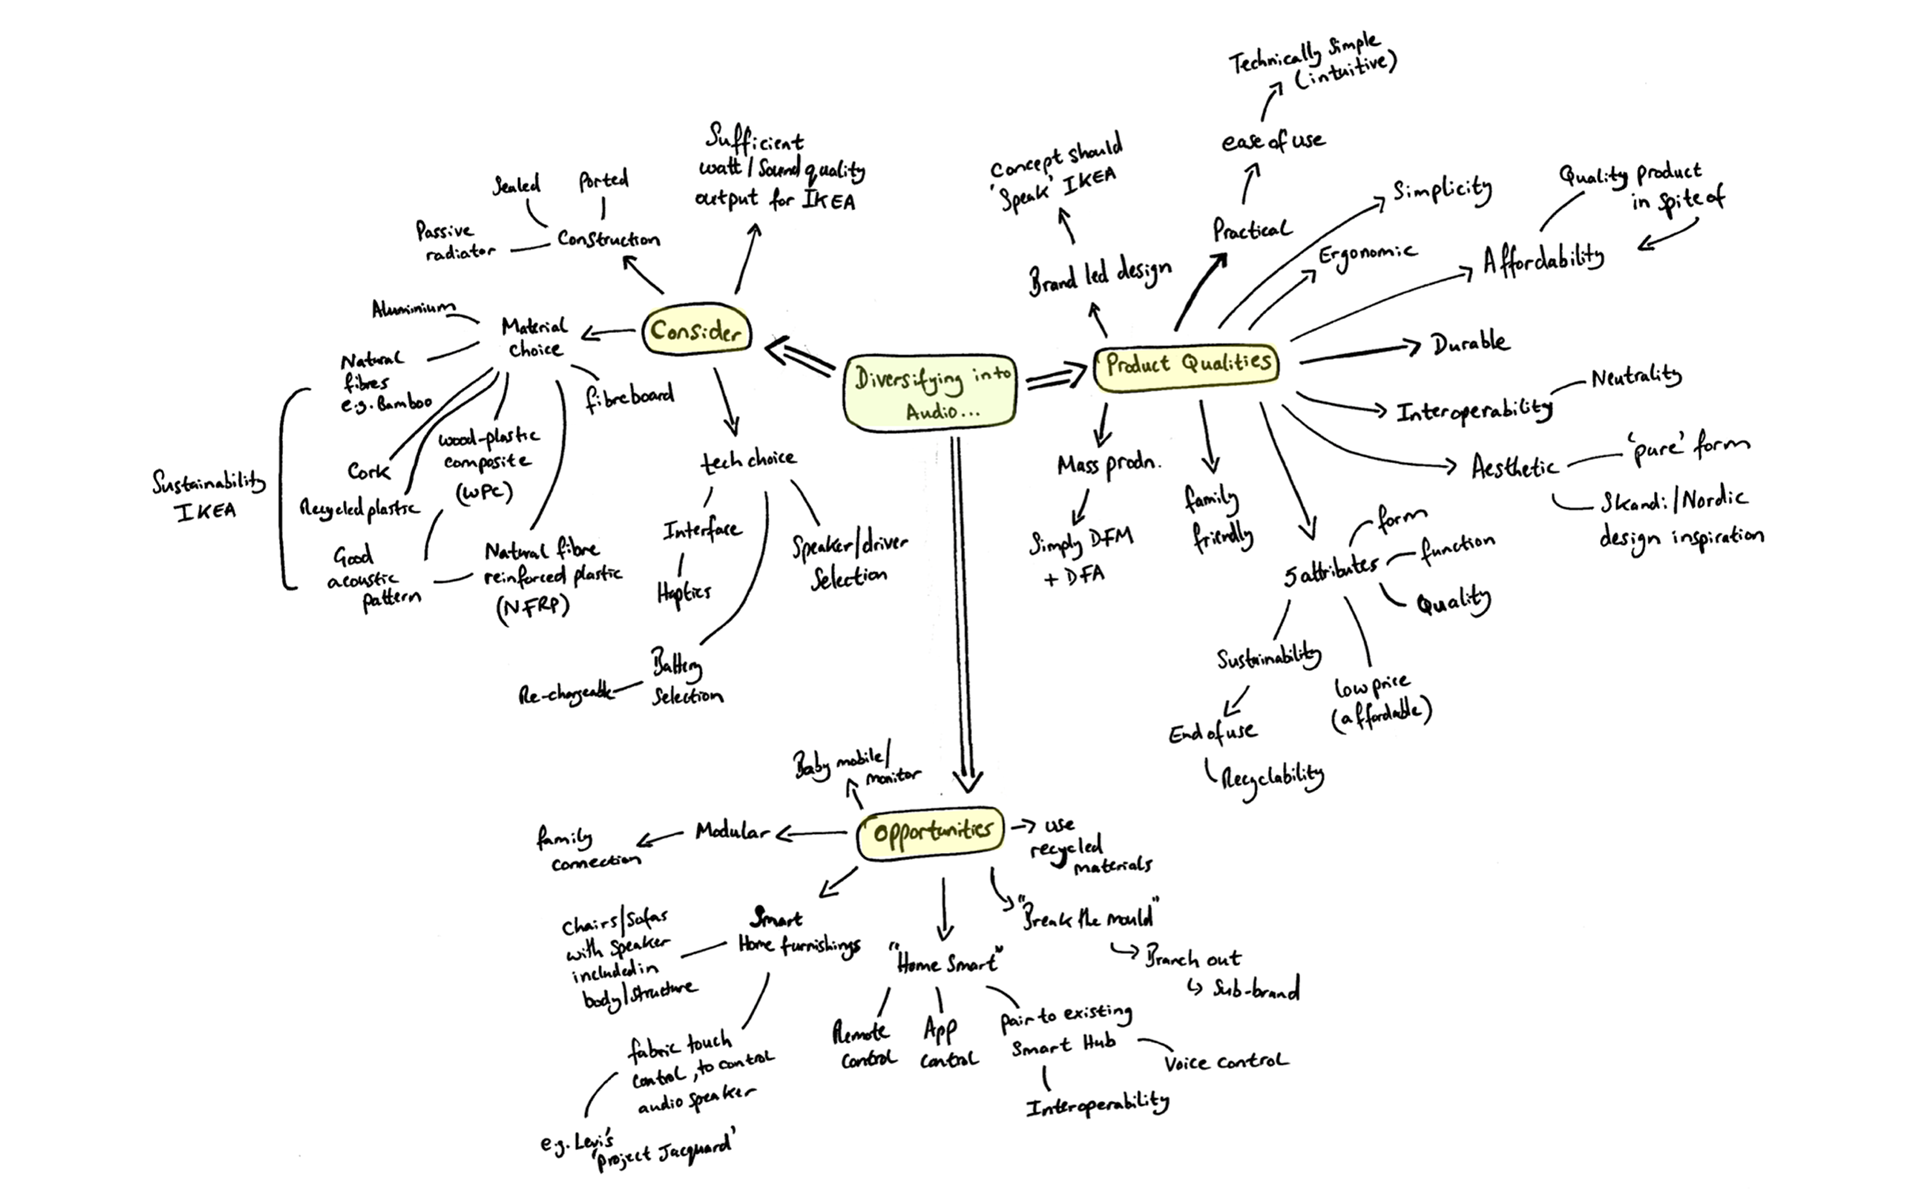 Diversifying into
Audio...
Consider
Sufficient
watt/Sound quality
output for IKEA
Construction
Sealed
Ported
Passive
radiator
Material
choice
Aluminium
Natural
fibres
e.g. Bamboo
Cork
Recycled plastic
wood-plastic
composite
(WPC)
Good
acoustic
pattern
Natural fibre
reinforced plastic
(NFRP)
fibreboard
Sustainability
IKEA
tech choice
Interface
Haptics
Battery
Selection
Re-chargeable
Speaker/driver
Selection
Product Qualities
Brand led design
Concept should
'Speak' IKEA
Practical
ease of use
Technically Simple
(intuitive)
Simplicity
Ergonomic
Affordability
Quality product
in spite of
Durable
Interoperability
Neutrality
Aesthetic
'pure' form
Skandi/Nordic
design inspiration
5 attributes
form
function
Quality
low price
(affordable)
Sustainability
End of use
Recyclability
family
friendly
Mass prodn.
Simply DFM
+ DFA
Opportunities
Baby mobile/
monitor
Modular
family
connection
Smart
Home furnishings
Chairs/Sofas
with speaker
included in
body/structure
fabric touch
control, to control
audio speaker
e.g. Levi's
'project Jacquard'
"Home Smart"
Remote
control
App
control
pair to existing
Smart Hub
Voice control
Interoperability
"Break the mould"
Branch out
Sub-brand
use
recycled
materials